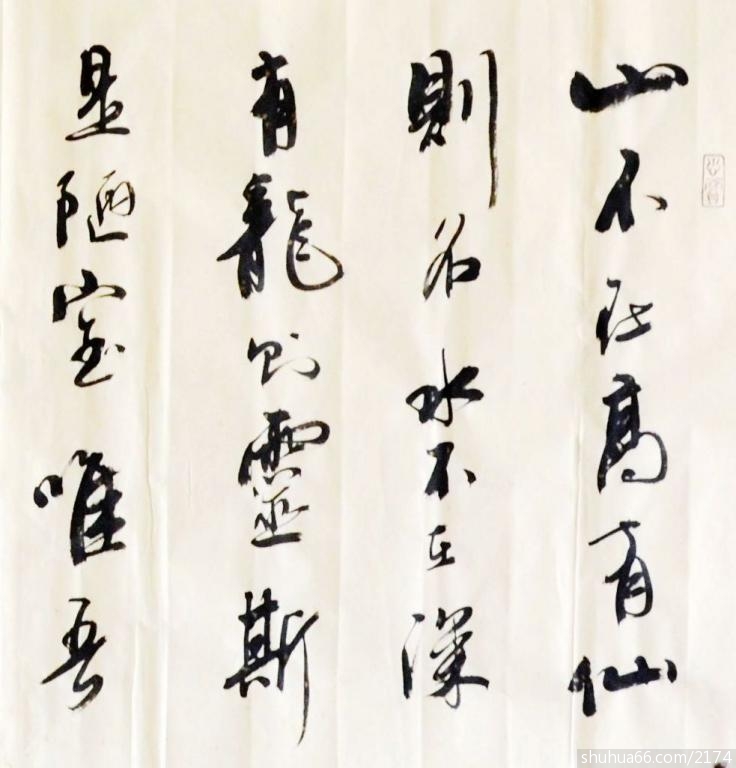 山不在高有仙
則名水不在深
有龍則靈斯
是陋室唯吾
shuhua66.com/2174